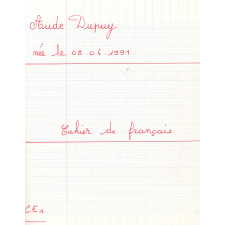 Aude Dupuy
née le 08.06.1991
Cahier de français
CE1